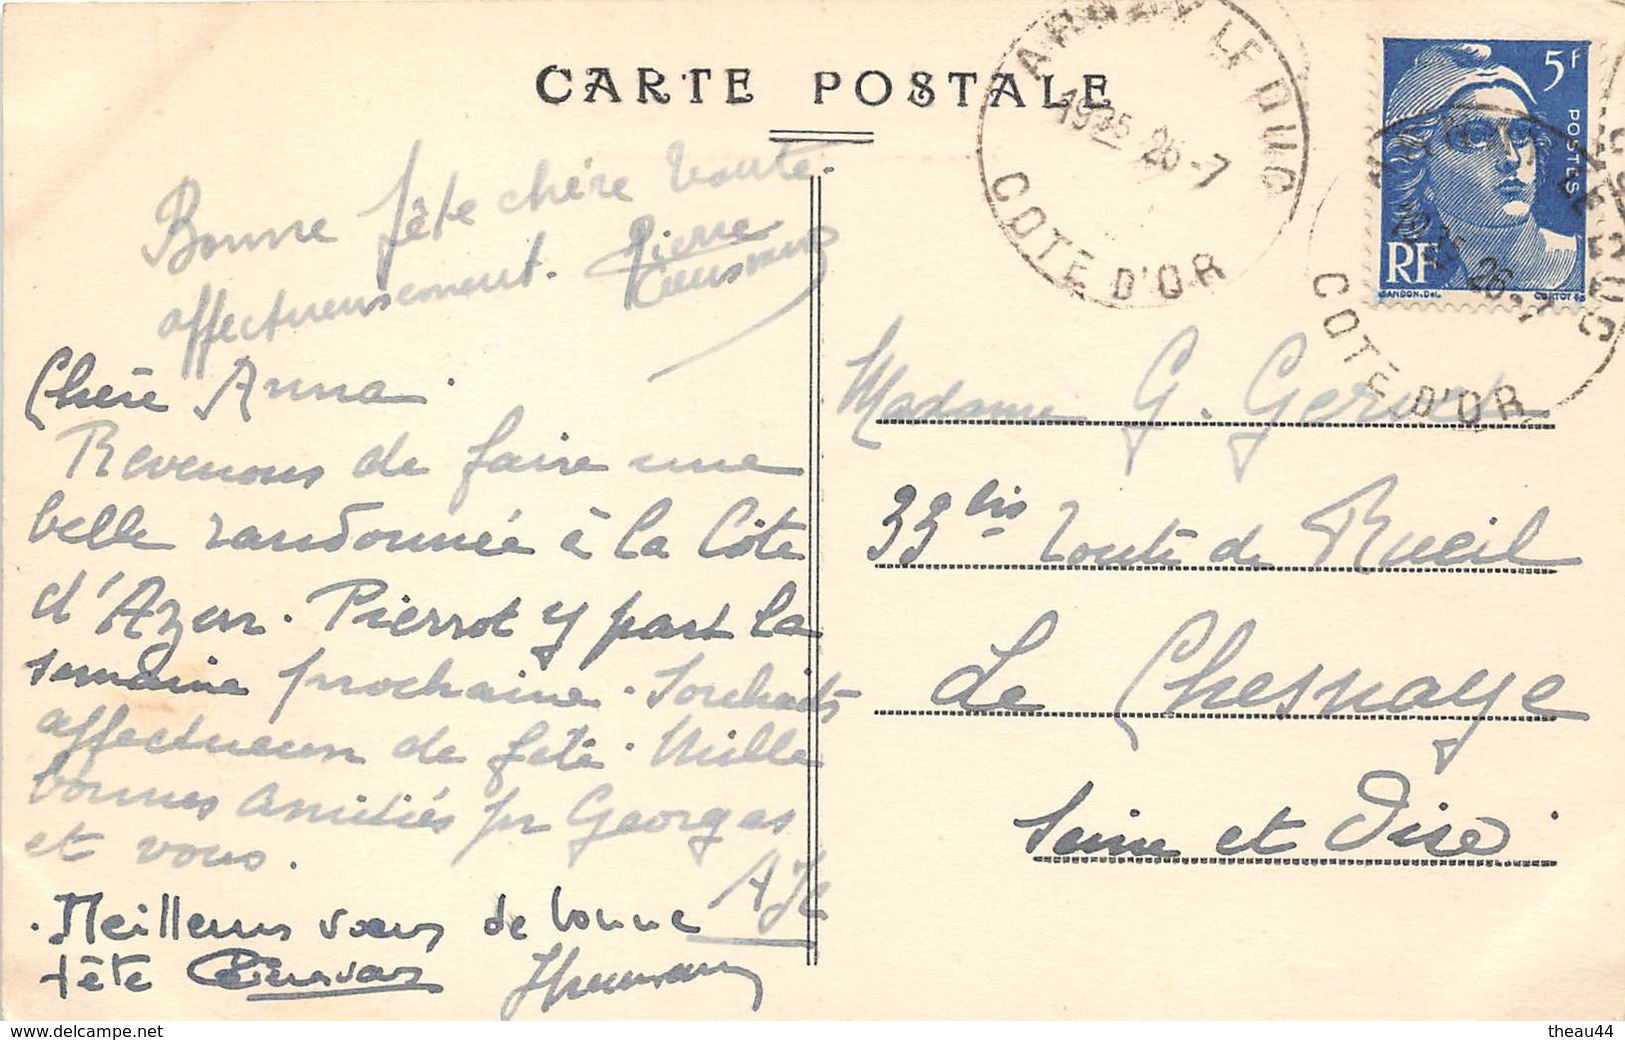 CARTE POSTALE
ARNAY LE DUC
26-7
COTE D'OR
5F
POSTES
RF
GANDON.Del.
CORTOT
LE DUC
26-7
COTE D'OR
Bonne fête chère
affectueusement. Pierre
Chère Anna.
Revenons de faire une
belle randonnée à la Côte
d'Azur. Pierrot y part la
semaine prochaine. Souhaits
affectueux de fête. Mille
bonnes amitiés pr Georges
et vous.
Meilleurs vœux de bonne
fête
Madame G.
33 bis route de Rueil
Le Chesnaye
Seine et Oise
www.delcampe.net
theau44